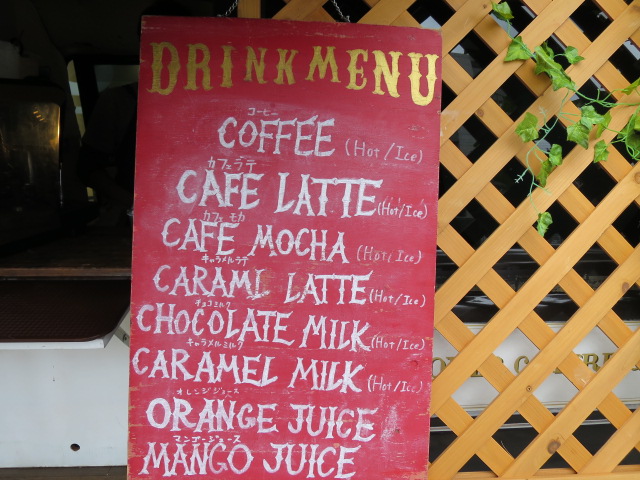 DRINK MENU
コーヒー
COFFEE (Hot/Ice)
カフェラテ
CAFE LATTE (Hot/Ice)
カフェ モカ
CAFE MOCHA (Hot/Ice)
キャラメルラテ
CARAML LATTE (Hot/Ice)
チョコミルク
CHOCOLATE MILK (Hot/Ice)
キャラメルミルク
CARAMEL MILK (Hot/Ice)
オレンジジュース
ORANGE JUICE
マンゴージュース
MANGO JUICE